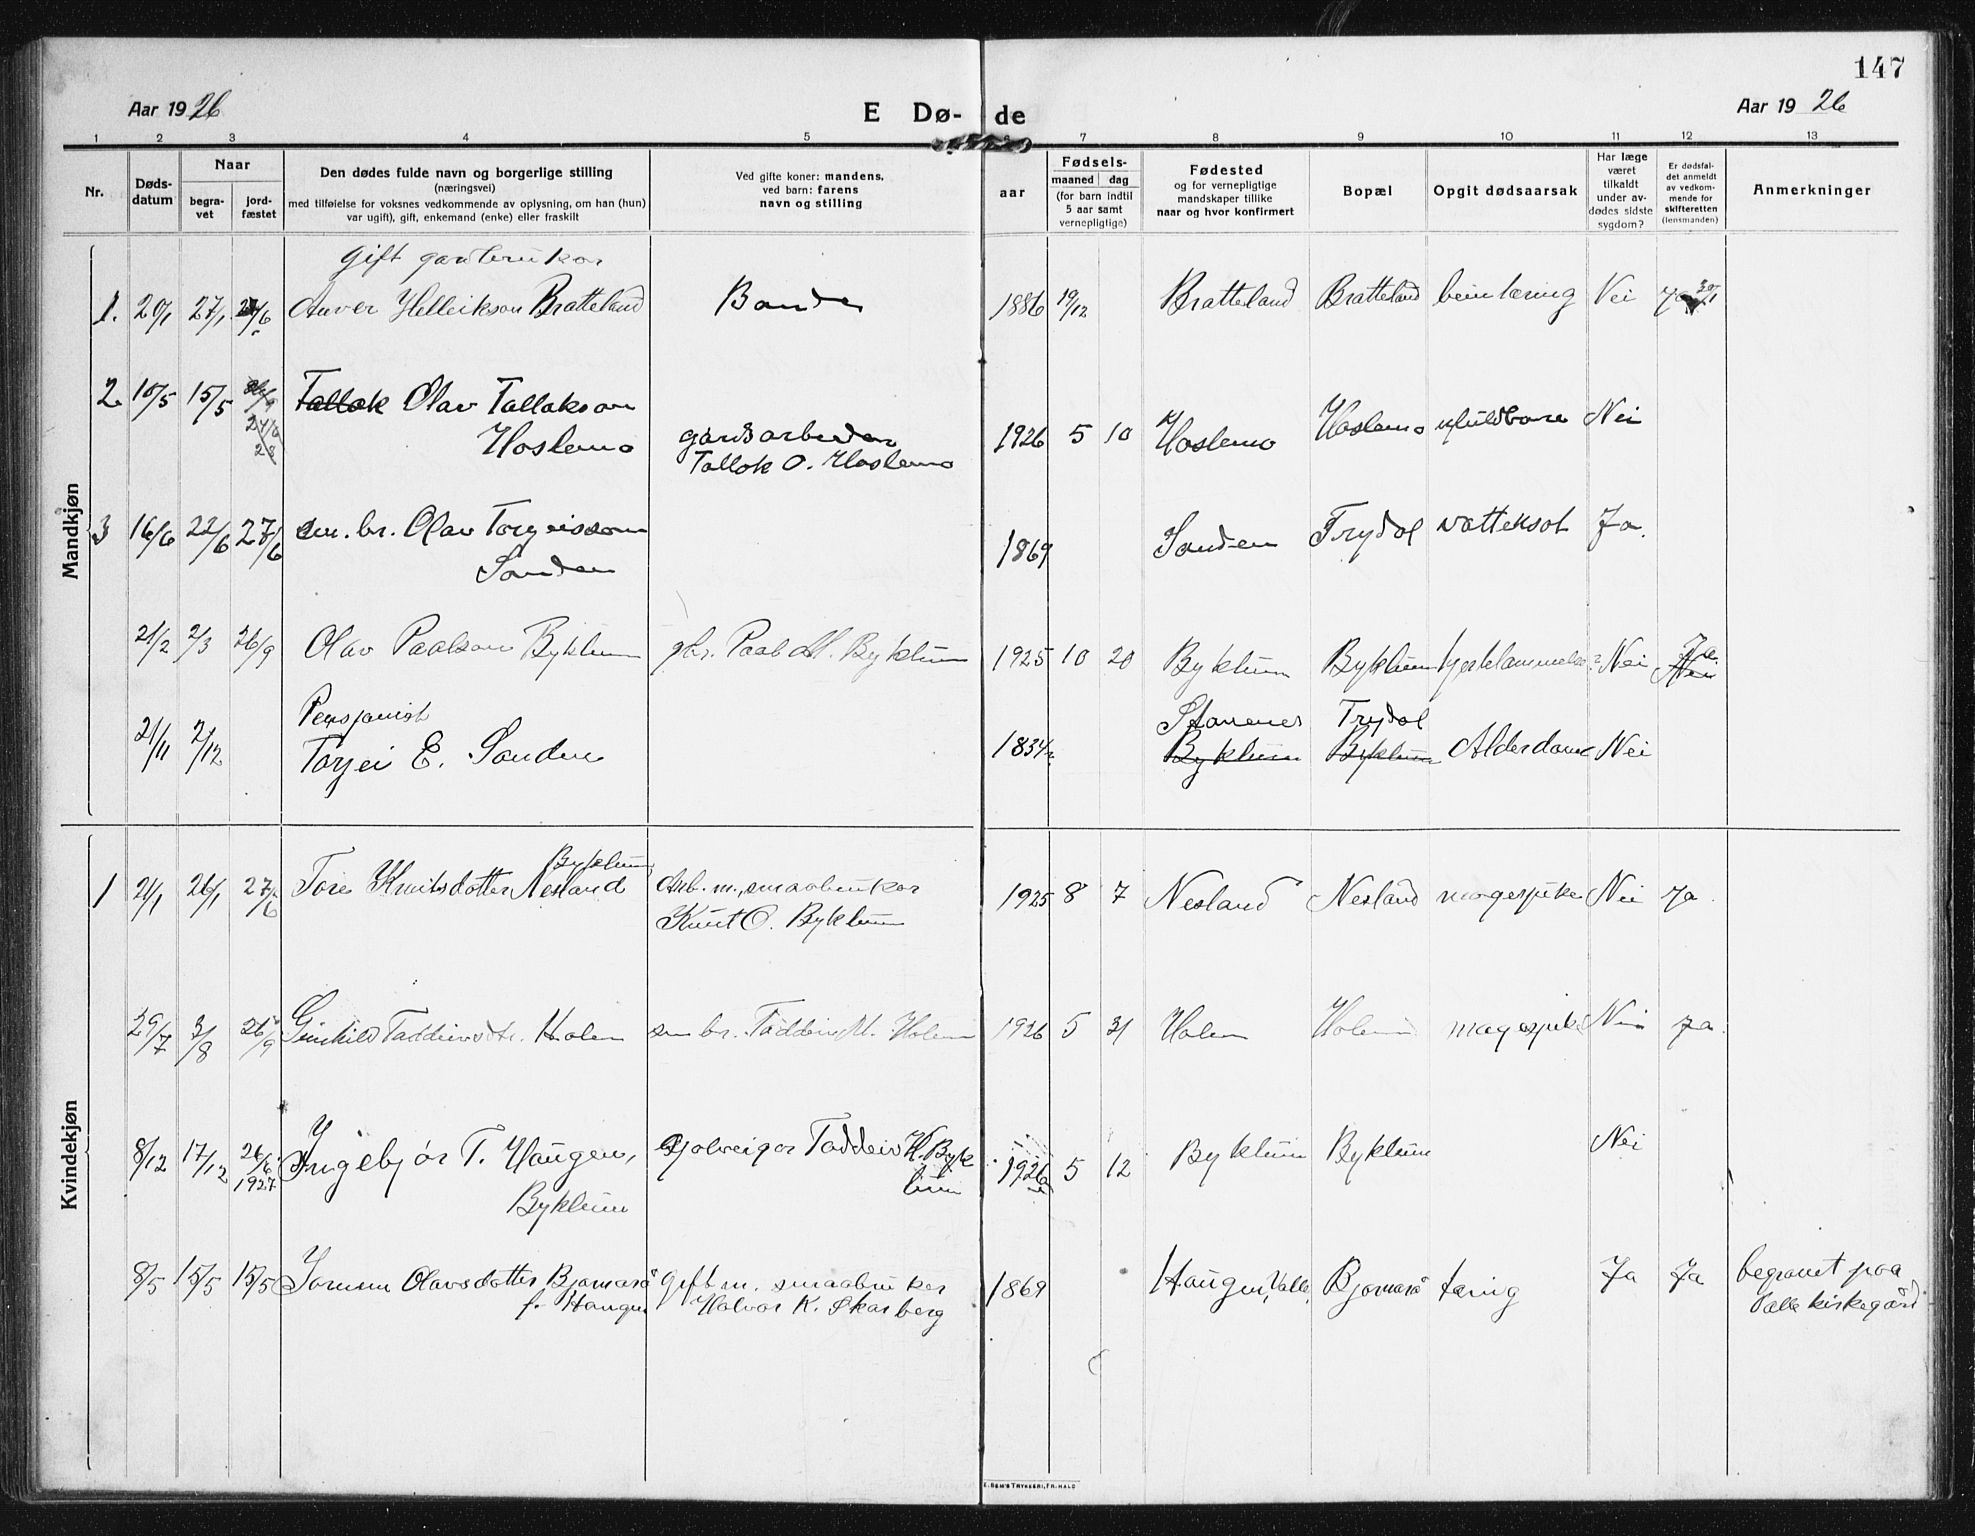 147
Aar 1926
E Dø- de
Aar 1926
1 2 3 4 5 6 7 8 9 10 11 12 13
Nr.
Døds-
datum
Naar
begra-
vet
jord-
fæstet
Den dødes fulde navn og borgerlige stilling
(næringsvei)
med tilføielse for voksnes vedkommende av oplysning, om han (hun)
var ugift), gift, enkemand (enke) eller fraskilt
Ved gifte koner: mandens,
ved barn: farens
navn og stilling
aar
Fødsels-
maaned dag
(for barn indtil
5 aar samt
vernepligtige)
Fødested
og for vernepligtige
mandskaper tillike
naar og hvor konfirmert
Bopæl
Opgit dødsaarsak
Har læge
været
tilkaldt
under av-
dødes sidste
sygdom?
Er dødsfal-
det anmeldt
av vedkom-
mende for
skifteretten
(lensmanden)
Anmerkninger
Mandkjøn
gift
1. 20/1 27/1 Helleikson Bratteland 1886 19/12 Bratteland Bratteland Nei
2. 10/5 15/5 Tallak Olav Tallakson
Hoslemo
gardsarbeider
Tallak O. Hoslemo
1926 5 10 Hoslemo Hoslemo Nei
3 16/6 22/6 27/6 em. br. Olav Torgeisson
Sanden
1869 Sanden Trydal vattersot Ja.
21/2 2/3 26/9 Olav Paalson Byklum gbr. Paal M. Byklum 1925 10 20 Byklum Byklum Nei Ja
Nei
Pensjonist
21/11 2/12 Torjei E. Sanden
1834 Stavenes Trydal
Byklum Byklum Alderdom Nei
Kvindekjøn
Byklum
1 21/1 26/1 27/6 Tore Knutsdotter Nesland Arb. m., smaabrukar
Knut O. Byklum
1925 8 7 Nesland Nesland magesjuke Nei Ja.
29/7 3/8 26/9 Gunhild Taddeivsdtr. Holen sm br. Taddeiv M. Holen 1926 5 31 Holen Holen magesjuke Nei Ja.
8/12 17/12 26/6
1927
Ingebjør T. Haugen,
Byklum
Taddeiv K. Byk
lum
1926 5 12 Byklum Byklum Nei
8/5 15/5 15/5 Jorunn Olavsdotter Bjørnarå
f. Haugen
gift m. smaabruker
Halvor K. Skarberg
1869 Haugen, Valle, Bjørnarå tæring Ja Ja begravet paa
Valle kirkegård
E. SEM'S TRYKKERI, FR. HALD